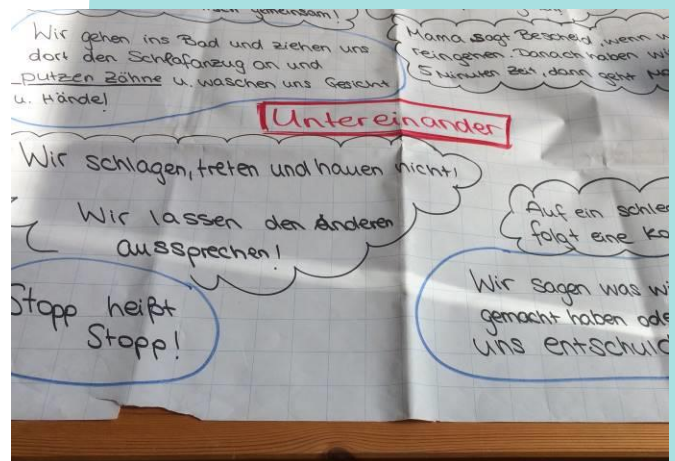 gemeinsam!
Wir gehen ins Bad und ziehen uns
dort den Schlafanzug an und
putzen Zähne u. waschen uns Gesicht
u. Hände!
Mama sagt Bescheid, wenn
reingehen. Danach haben
5 Minuten Zeit, dann geht
Untereinander
Wir schlagen, treten und hauen nicht!
Wir lassen den Anderen
aussprechen!
Auf ein
folgt eine
Stopp heißt
Stopp!
Wir sagen was
gemacht haben
uns